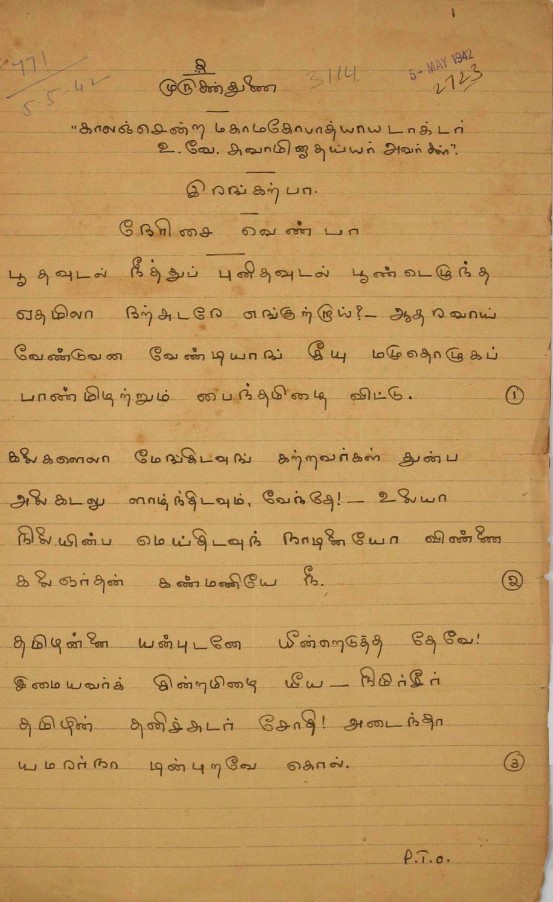 1
771
5-5-42
3114
5-MAY 1942
2723
உ
முருகன்துணை
"காலஞ்சென்ற மகாமகோபாத்யாய டாக்டர்
உ. வே. சுவாமிநாதய்யர் அவர்கள்".
இரங்கற்பா.
நேரிசை வெண்பா
பூதவுடல் நீத்துப் புனிதவுடல் பூண்டெழுந்த
ஏதமிலா நற்சுடரே எங்குற்றாய்?- ஆதரவாய்
வேண்டுவன வேண்டியாங் கீயு மமுதொழுகப்
பாண்மிழிற்றும் பைந்தமிழை விட்டு. ①
கலைகளெலா மேங்கிடவுங் கற்றவர்கள் துன்ப
அலைகடலு ளாழ்ந்திடவும், வேந்தே! - உலையா
நிலையின்ப மெய்திடவுந் நாடினையோ விண்ணை
கலைஞர்தன் கண்மணியே நீ. ②
தமிழன்னை யன்புடனே யீன்றெடுத்த தேவே!
இமையவர்க் கின்றமிழை யீய - நிமிர்சீர்
தமிழின் தனிச்சுடர் சோதி! அடைந்தா
யமரர்நா டின்புறவே கொல். ③
P.T.O.